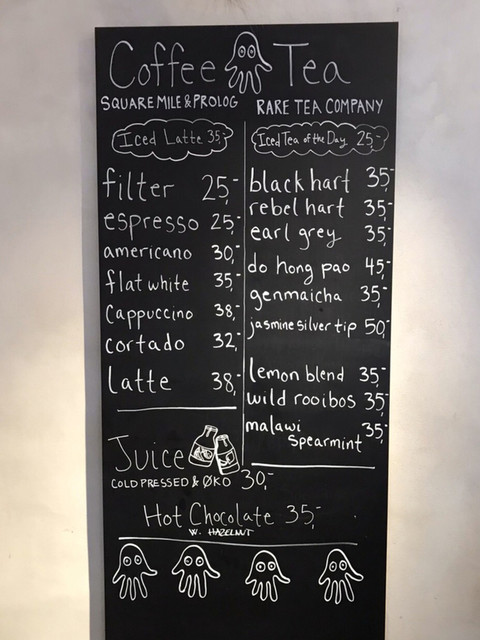 Coffee Tea
SQUARE MILE & PROLOG
RARE TEA COMPANY
Iced Latte 35,-
filter 25,-
espresso 25,-
americano 30,-
flat white 35,-
Cappuccino 38,-
cortado 32,-
Latte 38,-
Iced Tea of the Day 25,-
black hart 35,-
rebel hart 35,-
earl grey 35,-
do hong pao 45,-
genmaicha 35,-
jasmine silver tip 50,-
lemon blend 35,-
wild rooibos 35,-
malawi
spearmint 35,-
Juice
COLD PRESSED & ØKO 30,-
Hot Chocolate 35,-
W. HAZELNUT